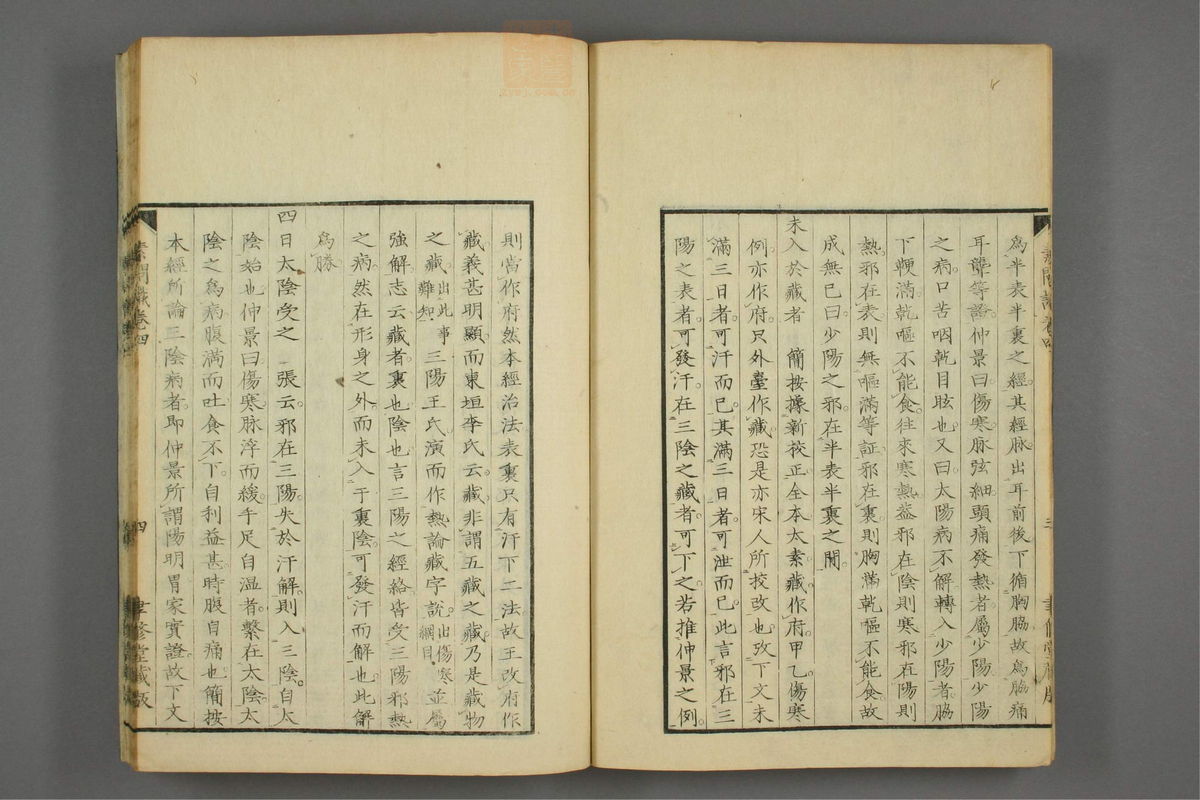 為半表半裏之經其經脉出耳前後下循胸脇故為脇痛
耳聾等證仲景曰傷寒脉弦細頭痛發熱者屬少陽少陽
之病口苦咽乾目眩也又曰太陽病不解轉入少陽者脇
下鞕滿乾嘔不能食往來寒熱蓋邪在陰則寒邪在陽則
熱邪在表則無嘔滿等証邪在裏則胸滿乾嘔不能食故
成無已曰少陽之邪在半表半裏之間
未入於藏者 簡按據新校正全本太素藏作府甲乙傷寒
例亦作府只外臺作藏恐是亦宋人所挍改也攷下文未
滿三日者可汗而已其滿三日者可泄而已此言邪在三
陽之表者可發汗在三陰之藏者可下之若推仲景之例
則當作府然本經治法表裏只有汗下二法故王改府作
藏義甚明顯而東垣李氏云藏非謂五藏之藏乃是藏物
之藏出此事難知三陽王氏演而作熱論藏字說出傷寒綱目並屬
強解志云藏者裏也陰也言三陽之經絡皆受三陽邪熱
之病然在形身之外而未入于裏陰可發汗而解也此解
為勝
四日太陰受之 張云邪在三陽失於汗解則入三陰自太
陰始也仲景曰傷寒脉浮而緩手足自溫者繫在太陰太
陰之為病腹滿而吐食不下自利益甚時腹自痛也簡按
本經所論三陰病者即仲景所謂陽明胃家實證故下文
素問識卷四
四
聿修堂藏版